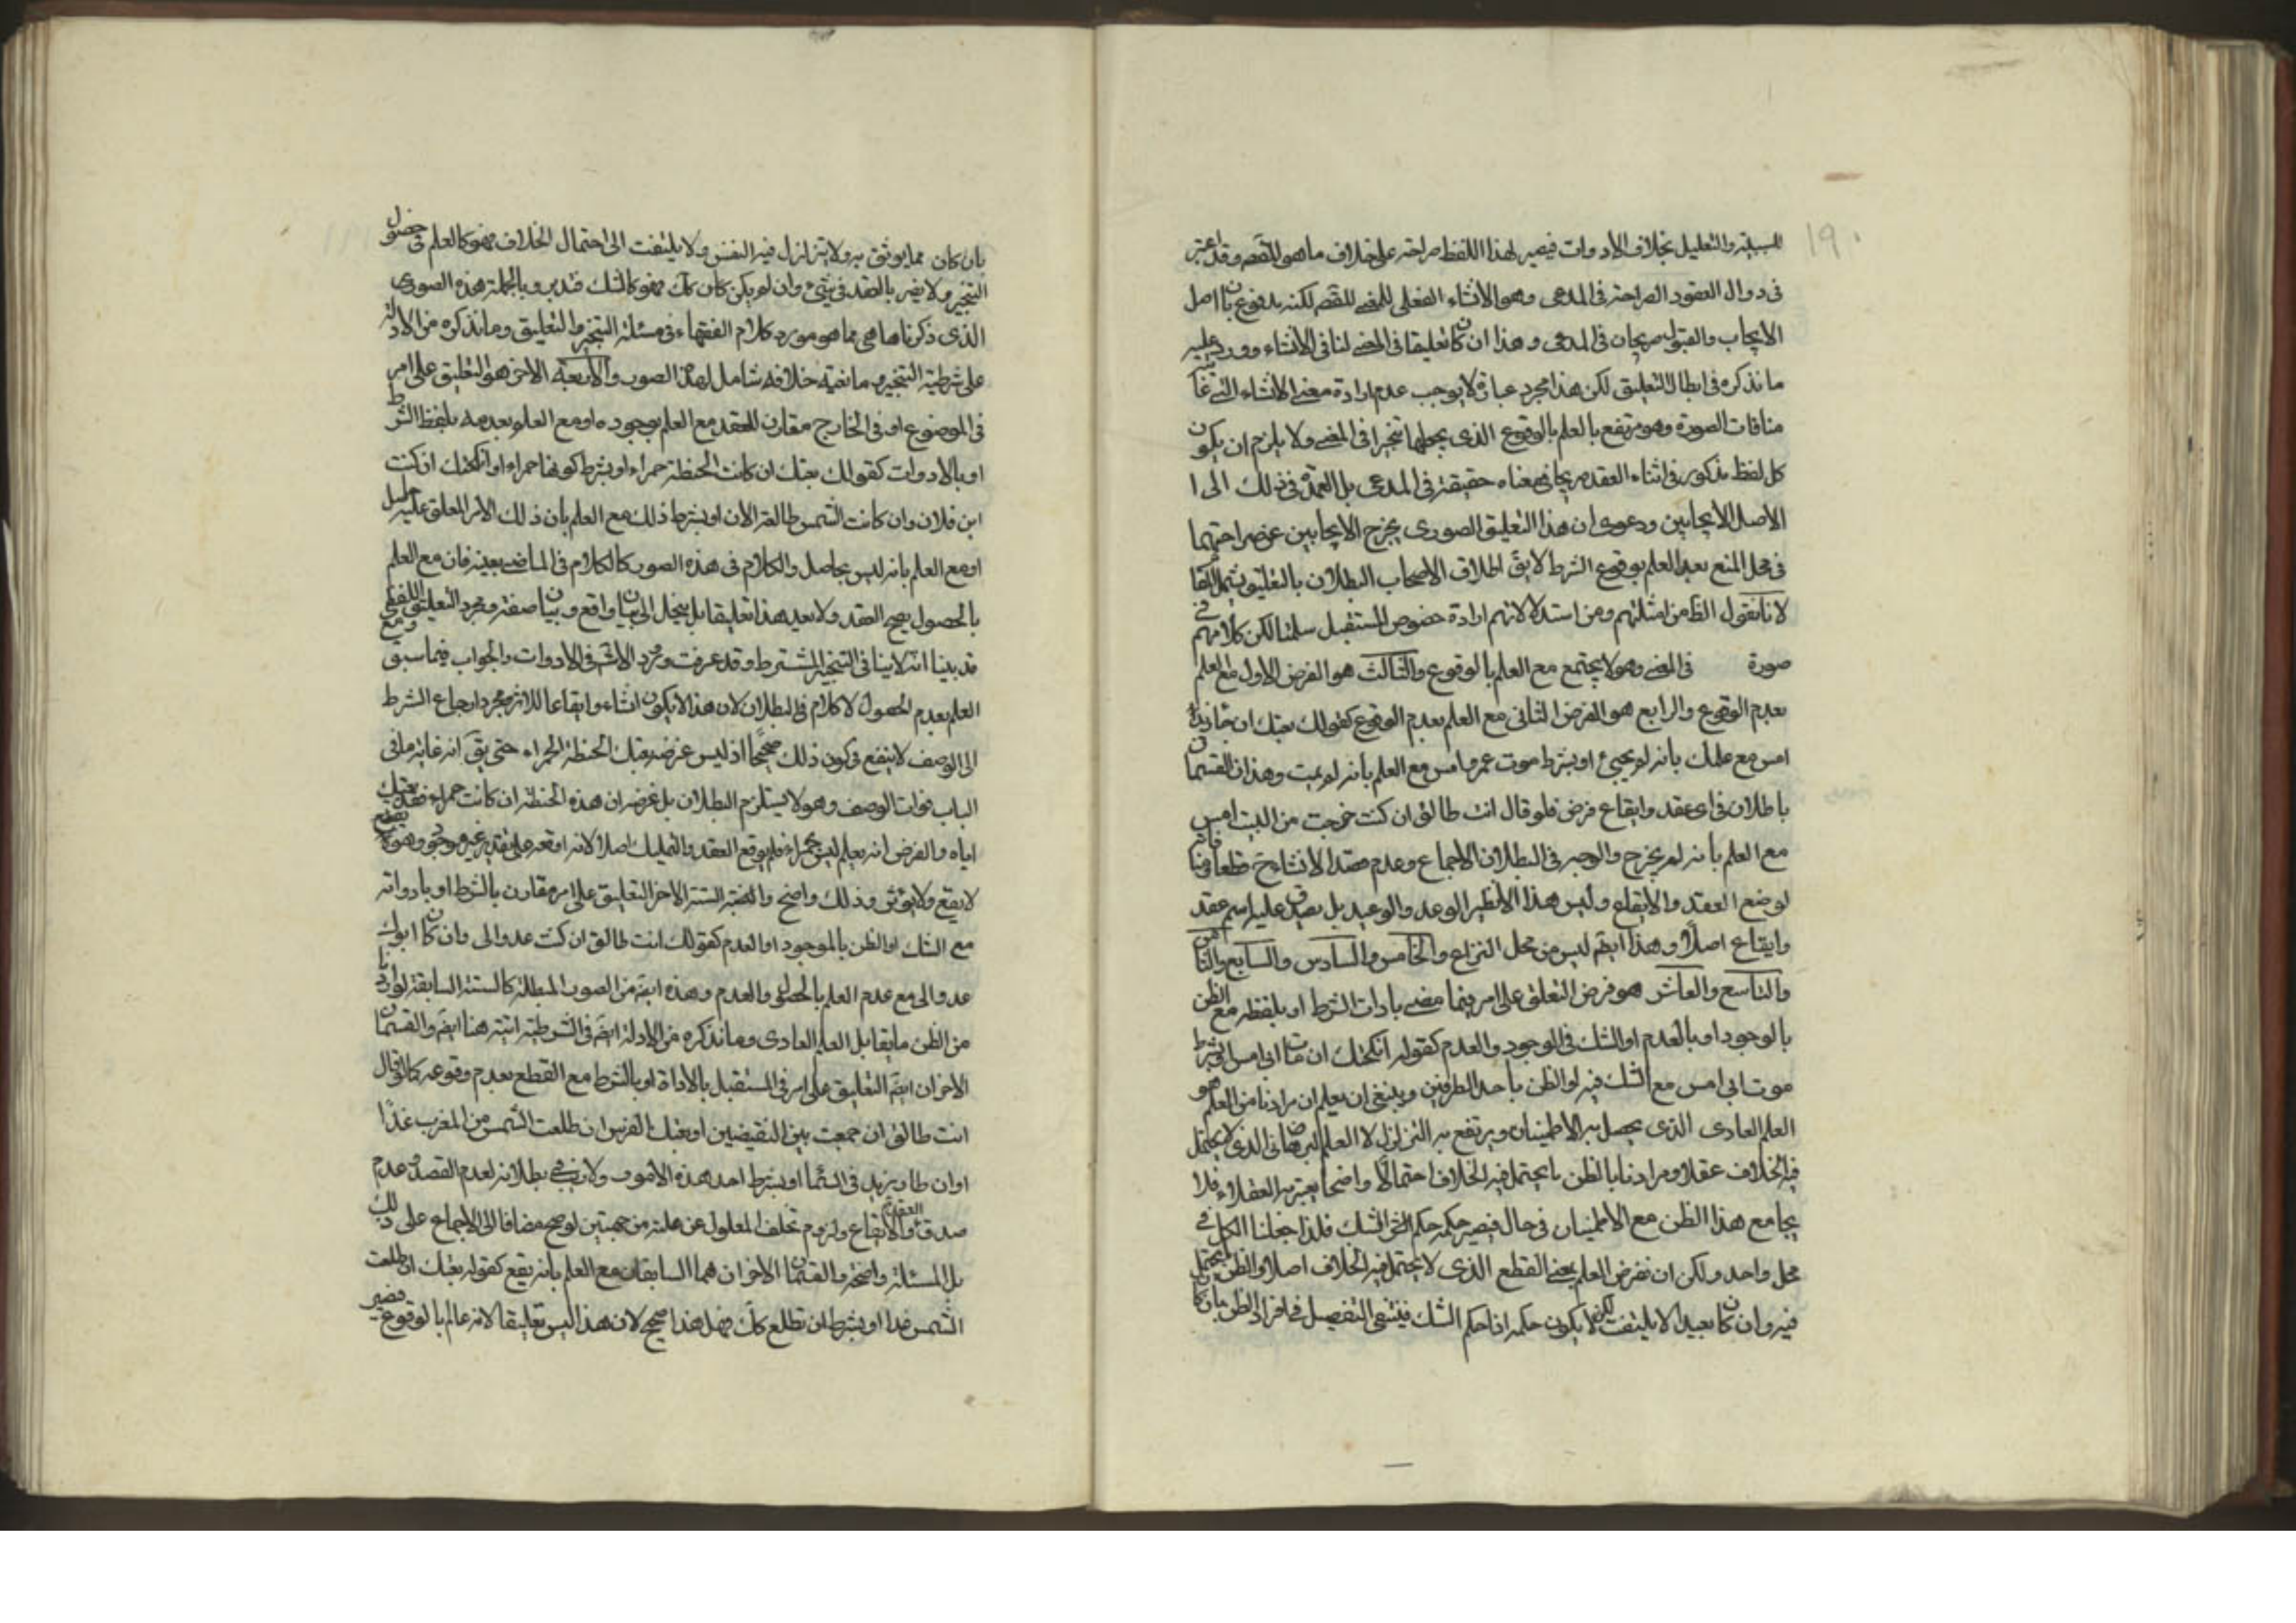 ١٩٠
للسببية والتعليل بخلاف الادوات فيصير لهذا اللفظ صراحة على خلاف ما هو المقصد وقد اعتبر
فى دوال العقود الصراحة فى المدعى وهو الانشاء الفعلى للمعنى المقصد لكنه مدفوع بان اصل
الايجاب والقبول صريحان فى المدعى وهذا ان كان تعليقا فى المعنى لنافى الانشاء وورد عليه
ما نذكره فى ابطال التعليق لكن هذا مجرد عبارة لا يوجب عدم ارادة معنى الانشاء التى غايته
منافات الصورة وهو مرتفع بالعلم بالوقوع الذى يجعلها تنجيزا فى المعنى ولا يلزم ان يكون
كل لفظ مذكور فى اثناء العقد صريحا فى معناه حقيقة فى المدعى بل العمدة فى ذلك الى ا
الاصل الايجابين ودعوى ان هذا التعليق الصورى يخرج الايجابين عن صراحتهما
فى محل المنع بعد العلم بوقوع الشرط لا يق اطلاق الاصحاب البطلان بالتعليق يشمل المقام
لانا نقول الظ من امثلتهم ومن استدلالاتهم ارادة خصوص المستقبل سلمنا لكن كلامهم فى
صورة فى المعنى وهو لا يجتمع مع العلم بالوقوع والثالث هو الفرض الاول مع العلم
بعدم الوقوع والرابع هو الفرض الثانى مع العلم بعدم الوقوع كقولك بعتك ان جاء زيد
امس مع علمك بانه لم يجيئ او بشرط موت عمرو امس مع العلم بانه لم يمت وهذان القسمان
باطلان فى اى عقد وايقاع فرض فلو قال انت طالق ان كنت خرجت من البيت امس
مع العلم بانه لم يخرج والوجه فى البطلان الاجماع وعدم قصد الانشاء ح قطعا ومنافاته
لوضع العقد والايقاع وليس هذا الا نظير الوعد والوعيد بل لا يصدق عليه اسم عقد
وايقاع اصلا وهذا ايضم ليس من محل النزاع والخامس والسادس والسابع والثامن
والتاسع والعاشر هو فرض التعلق على امر فيما مضى بادات الشرط او بلفظه مع الظن
بالوجود او بالعدم او الشك فى الوجود والعدم كقوله انكحتك ان مات ابى امس او بشرط
موت ابى امس مع الشك فيه او الظن باحد الطرفين وينبغى ان يعلم ان مرادنا من العلم هو
العلم العادى الذى يحصل به الاطمينان ويرتفع به التزلزل لا العلم البرهانى الذى لا يحتمل
فيه الخلاف عقلا ومرادنا بالظن ما يحتمل فيه الخلاف احتمالا واضحا يعتبره العقلاء فلا
يجامع هذا الظن مع الاطمينان فى حال فيصير حكمه حكم الشك فلذا جعلنا الكل فى
محل واحد ولكن ان نفرض العلم بمعنى القطع الذى لا يحتمل فيه الخلاف اصلا والظن ما يحتمل
فيه وان كان بعيدا لا يلتفت لكن لا يكون حكمه اذا حكم الشك فينبغى التفصيل فى افراد الظن بان كان
بان كان مما يوثق به ولا يتزلزل فيه النفس ولا يلتفت الى احتمال الخلاف فهو كالعلم فى حصول
التنجيز ولا يضر بالعقد فى شئ وان لم يكن كان كك فهو كالشك فتدبر وبالجملة هذه الصورى
الذى ذكرناها هى مما هو مورد كلام الفقهاء فى مسئلة التنجيز والتعليق وما نذكره من الادلة
على شرطية التنجيز ومانعية خلافه شامل لهذ الصور والاربعة الاخر هو التعليق على امر
فى الموضوع او فى الخارج مقارن للعقد مع العلم بوجوده او مع العلم بعدمه بلفظ الشرط
او بالادوات كقولك بعتك ان كانت الحنطة حمراء او بشرط كونها حمراء او انكحتك ان كنت
ابن فلان وان كانت الشمس طالعة الان او بشرط ذلك مع العلم بان ذلك الامر المعلق عليه حاصل
او مع العلم بانه ليس بحاصل والكلام فى هذه الصور كالكلام فى الماضى بعينه فان مع العلم
بالحصول يصح العقد ولا يعد هذا تعليقا بل ينحل الى بيان واقع وبيان صفة ومجرد التعليق اللفظى
قد بينا انه لا ينافى التنجيز المشترط وقد عرفت ورود الاشكال فى الادوات والجواب فيما سبق ومع
العلم بعدم الحصول لا كلام فى البطلان لان هذا لا يكون انشاء وايقاعا للاثر ومجرد ارجاع الشرط
الى الوصف لا ينفع فى كون ذلك صحيحا اذ ليس غرضه بعتك الحنطة الحمراء حتى يق انه غاية ما فى
الباب فوات الوصف وهو لا يستلزم البطلان بل غرضه ان هذه الحنطة ان كانت حمراء فقد بعتك
اياه والفرض انه يعلم ليس بحمراء فلم يوقع العقد والتمليك اصلا لانه اوقعه على تقدير غير موجود وهو
لا يقع ولا يؤثر وذلك واضح والستة الاخر التعليق على امر مقارن بالشرط او بادواته
مع الشك او الظن بالموجود او العدم كقولك انت طالق ان كنت عدوا لى وان كان ابوك
عدوا لى مع عدم العلم بالحصول والعدم وهذه ايضم من الصور المبطلة كالستة السابقة لو اردنا
من الظن ما يقابل العلم العادى وما نذكره من الادلة ايضم فى الشرطية اتية هنا ايضم والقسمان
الاخران ايضم التعليق على امر فى المستقبل بالاداة او بالشرط مع القطع بعدم وقوعه كما لو قال
انت طالق ان جمعت بين النقيضين او بعتك الفرس ان طلعت الشمس من المغرب غدا
او ان طار زيد فى السماء او بشرط احد هذه الامور ولا ريب فى بطلانه لعدم القصد وعدم
صدق العقد والايقاع ولزوم تخلف المعلول عن علته من جهتين لو صح مضافا الى الاجماع على ذلك
بل المسئلة واضحة والقسمان الاخران هما السابقان مع العلم بانه يقع كقوله بعتك ان طلعت
الشمس غدا او بشرط ان تطلع كك فهل هذا صحيح لان هذا ليس تعليقا لانه عالم بالوقوع فيصير